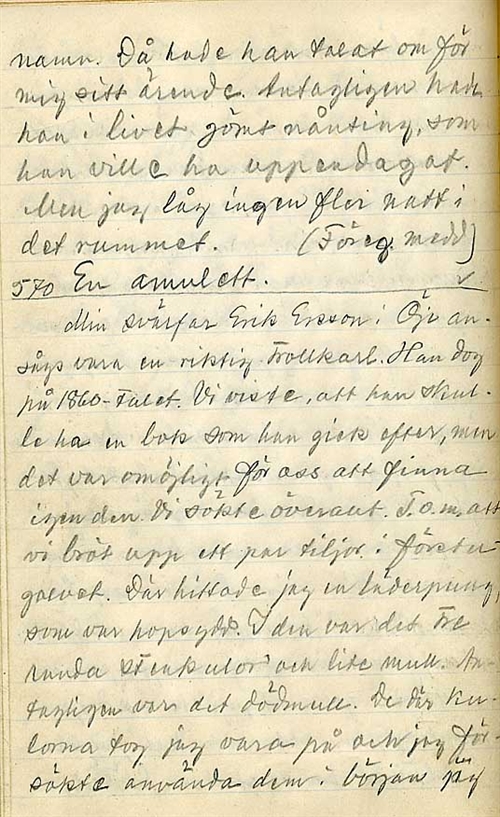 namn. Då hade han talat om för
mig sitt ärende. Antagligen hade
han i livet gömt nånting, som
han ville ha uppendagat.
Men jag låg ingen fler natt i
det rummet. (Föreg. medd)
570 En amulett. ✓
Min svärfar Erik Erson i Öje an-
sågs vara en riktig trollkarl. Han dog
på 1860-talet. Vi viste, att han skul-
le ha en bok som han gick efter, men
det var omöjligt för oss att finna
igen den. Vi sökte överallt. T.o.m. att
vi bröt upp ett par tiljor i förstu-
golvet. Där hittade jag en läderpung,
som var hopsydd. I den var det tre
runda stenkulor och lite mull. An-
tagligen var det dödmull. De där ku-
lorna tog jag vara på och jag för-
sökte använda dem i början jag